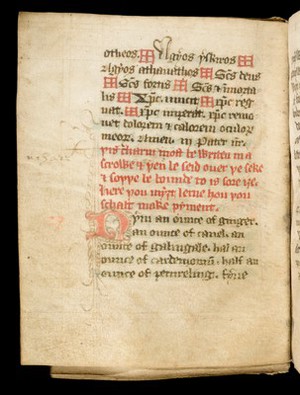 otheos. ✠ Agyos yskiros ✠
Agyos athanathos ✠ Scs deus
✠ Scs fortis ✠ Scs & inmorta
lis ✠ Xpc. vincit ✠ xpc reg
nat. ✠ xpc imperat. xpc remo
uet dolorem & calorem oculor
meor. Amen. iij Pater nr.
yis charm most be writen in a
scrolle & yen be seid ouer ye seke
& soyye be bounde to is sore ye.
Here you myȝt lerne hou you
schalt make pyment.
Nym an ounce of ginger.
an ounce of canel. an
ounce of galingale. hal an
ounce of cardemom. half an
ounce of